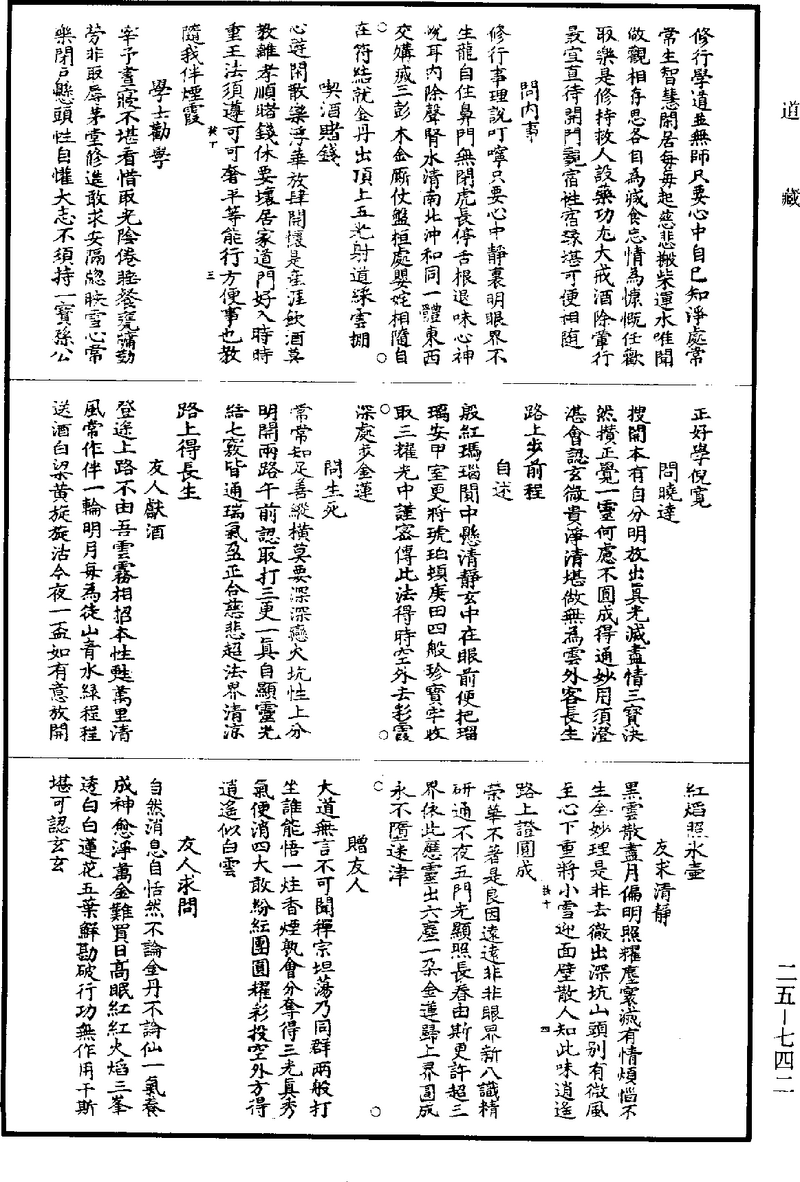 道藏
修行學道並無師只要心中自已知淨處常
常生智慧閑居每每起慈悲搬柴運水唯閑
做觀相存思各自為減食忘情為慷慨任歡
取樂是修持救人設藥功尤大戒酒除葷行
最宜直待開門説宿性宿緣堪可便相随
問內事
修行事理說叮嚀只要心中靜裏明眼界不
生龍自住鼻門無閉虎長停舌根退味心神
悅耳內除聲腎水清南北沖和同一體東西
交媾滅三彭木金廝仗盤桓處嬰姹相隨自
在符結就金丹出頂上五光射道綵雲棚
喫酒賭錢
心遊閑散樂浮華放肆開懷是產涯飲酒莫
教離孝順賭錢休要壞居家道門好入時時
重王法須遵可可奢平等能行方便事也教
隨我伴煙霞
學士勸學
宰予晝寢不堪看惜取光陰倦睡餐甕牖勤
勞非取辱茅堂修進敢求安隔牎映雪心常
樂閉戶懸頭性自懽大志不須持一寶孫公
正好學倪寬
問曉達
搜開本有自分明放出真光滅盡情三寶決
然攢正覺一靈何處不圓成得通妙用須澄
湛會認玄微貴淨清堪做無為雲外客長生
路上步前程
自述
殷紅瑪瑙閬中懸清靜玄中在眼前便把瑠
璃安甲室更將琥珀頓庚田四般珍寶牢收
取三耀光中謹密傳此法得時空外去彩霞
深處步金蓮
問生死
常常知足善縱橫莫要深深戀火坑性上分
明開兩路午前認取打三更一真自顯靈光
結七竅皆通瑞氣盈正合慈悲超法界清涼
路上得長生
友人獻酒
登途上路不由吾雲霧相招本性甦萬里清
風常作伴一輪明月每為徒山青水綠程程
送酒白粱黃旋旋沽今夜一盃如有意放開
紅焰照氷壺
友求清靜
黑雲散盡月偏明照耀塵寰滅有情煩惱不
生全妙理是非去徹出深坑山頭別有微風
至心下重將小雪迎面壁散人知此味逍遙
路上證圓成
榮華不著是良因遠遠非非眼界新八識精
研通不夜五門光顯照長春由斯更許超三
界依此應靈出六塵一朶金蓮歸上界圓成
永不墮迷津
贈友人
大道無言不可聞禪宗坦蕩乃同群兩般打
坐誰能悟一炷香煙孰會分奪得三光真秀
氣便消四大敢紛紜團圓耀彩投空外方得
逍遙似白雲
友人求問
自然消息自恬然不論金丹不論仙一氣養
成神愈淨萬金難買日高眠紅紅火焰三峯
透白白蓮花五葉鮮勘破行功無作用千斯
堪可認玄玄
二五—七四二